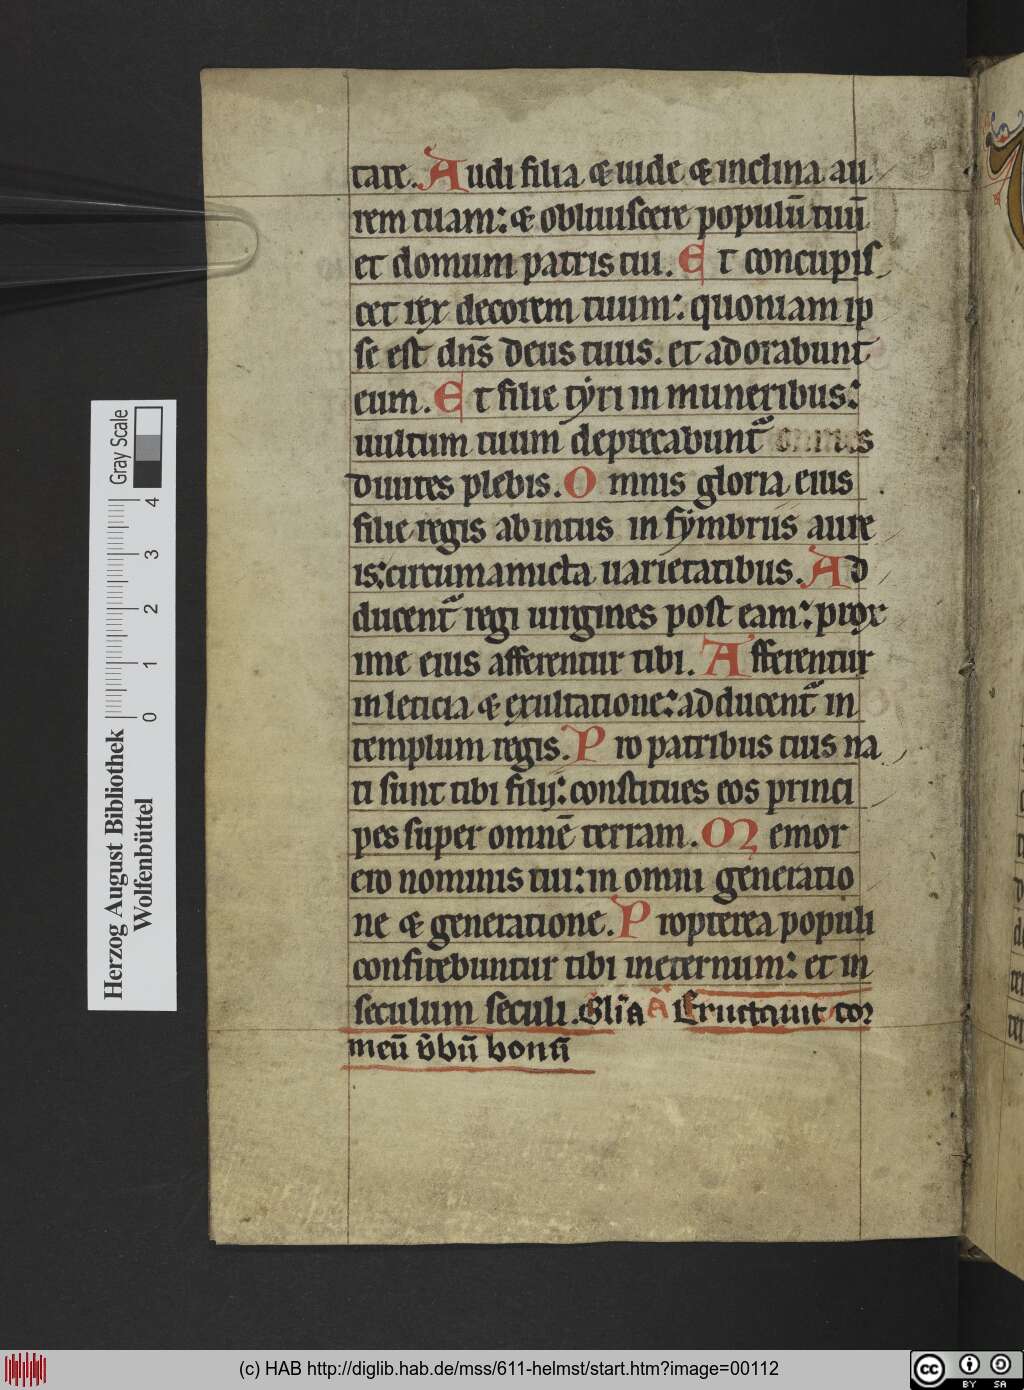 tate. Audi filia & uide & inclina au
rem tuam: & obliuiscere populū tuū
et domum patris tui. Et concupis
cet rex decorem tuum: quoniam ip
se est dn̄s deus tuus. et adorabunt
eum. Et filie tẏri in muneribus:
uultum tuum deprecabunt᷑ omnes
diuites plebis. Omnis gloria eius
filie regis ab intus in fẏmbriis aure
is: circumamicta uarietatibus. Ad
ducent᷑ regi uirgines post eam: prox
ime eius afferentur tibi. Afferentur
in leticia & exultatione: adducent᷑ in
templum regis. Pro patribus tuis na
ti sunt tibi filij: constitues eos princi
pes super omnē terram. Memor
ero nominis tui: in omni generatio
ne & generatione. Propterea populi
confitebuntur tibi ineternum: et in
seculum seculi. Gl̄ia A Eructauit cor
meū v̄bū bonū
Gray Scale
4
3
2
1
0
Herzog August Bibliothek
Wolfenbüttel
(c) HAB http://diglib.hab.de/mss/611-helmst/start.htm?image=00112
cc
BY SA